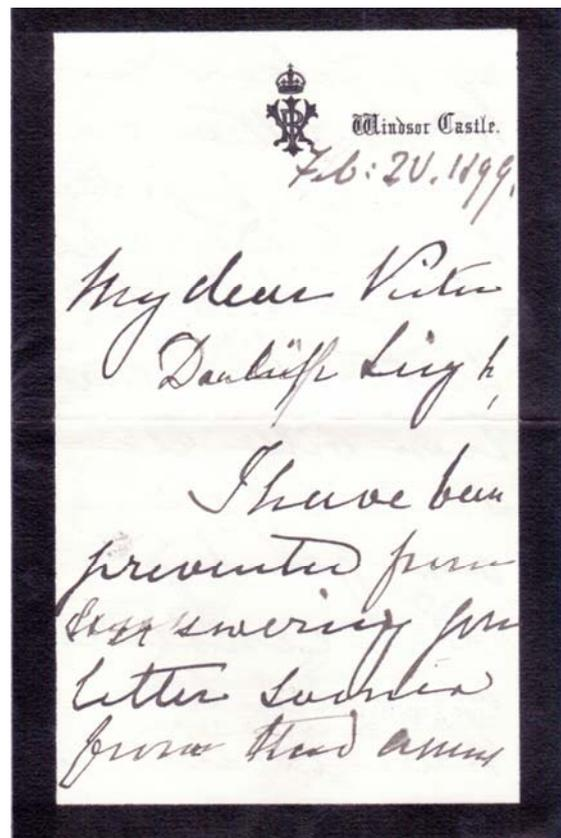 Windsor Castle.
Feb: 20. 1899.
My dear Victor
Singh,
I have been
prevented from
answering your
letter sooner
from